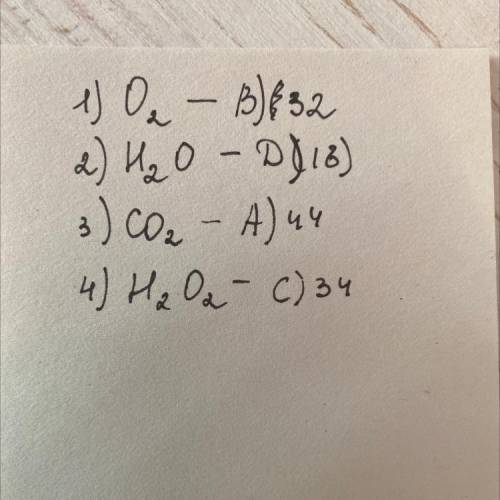 1) O₂ – B) 32
2) H₂O – D) 18)
3) CO₂ – A) 44
4) H₂O₂ – C) 34